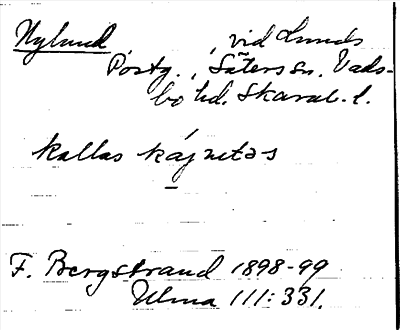 Nylund, vid Lunds
Postg., Säters sn. Vads-
bo hd. Skarab. l.
kallas kájnetəs
F. Bergstrand 1898-99
Ulma 111:331.